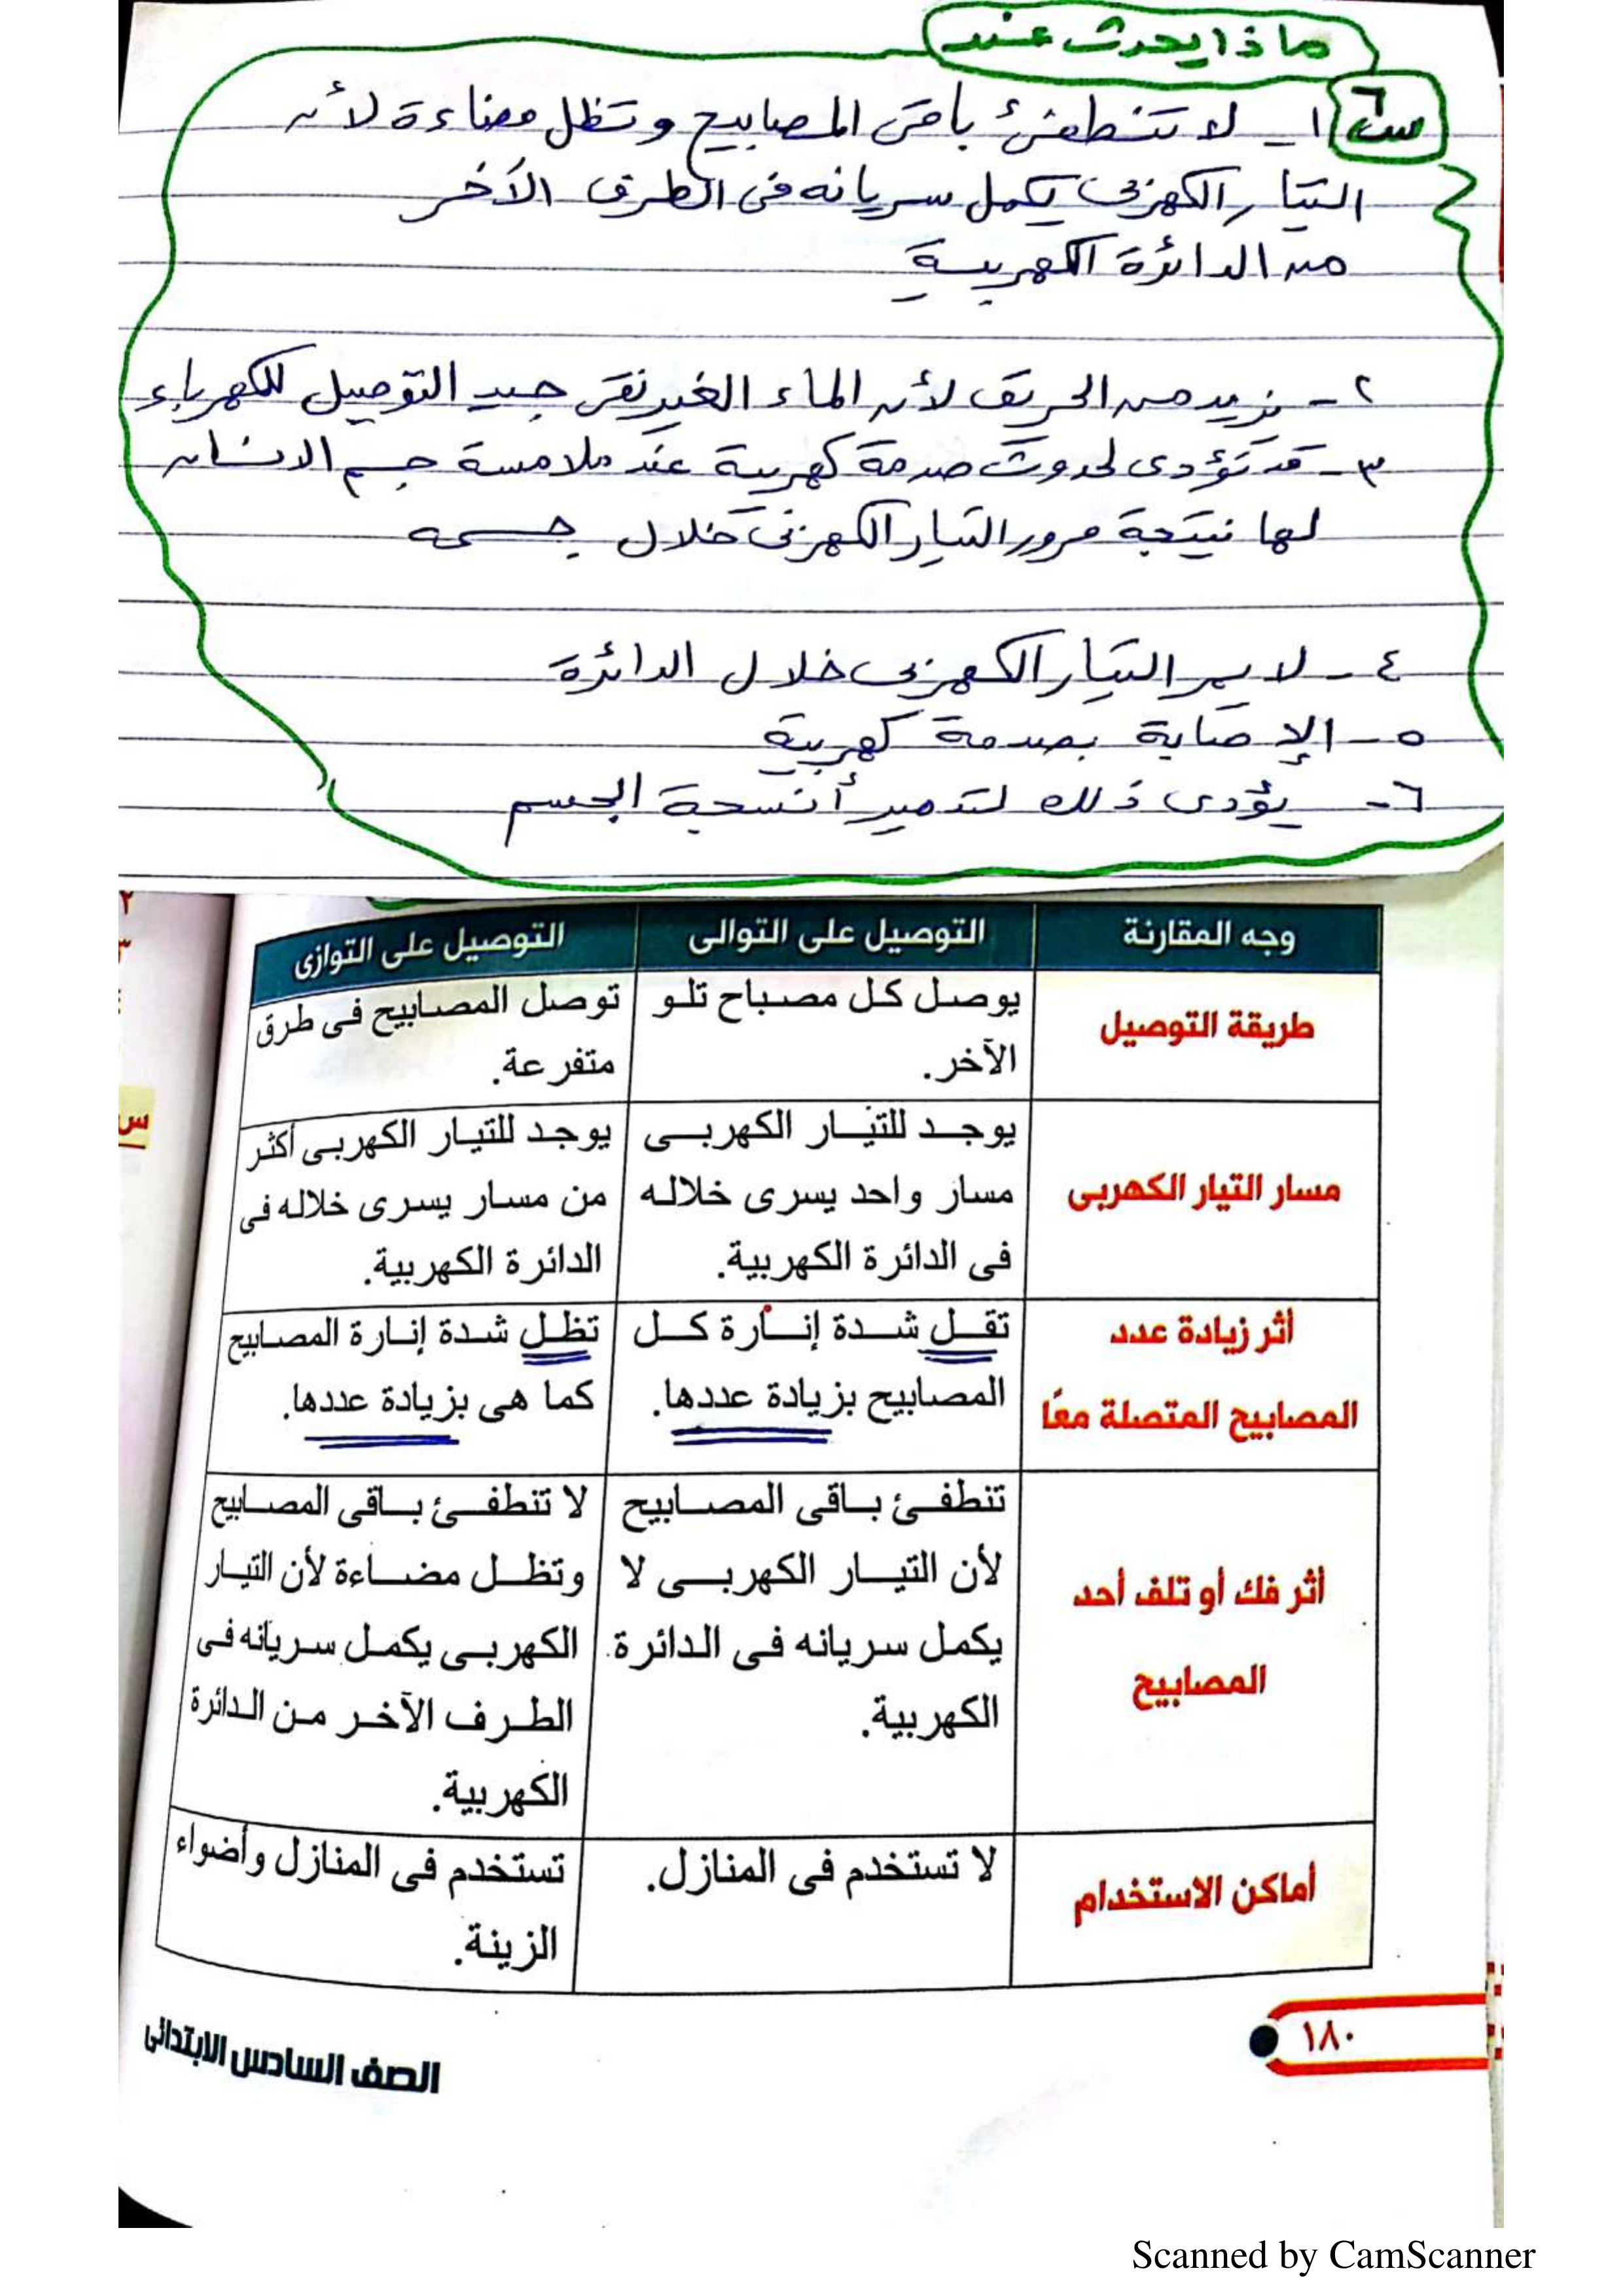 ماذا يحدث عند
س٦ ١ - لا تنطفئ باقى المصابيح وتظل مضاءة لأن
التيار الكهربى يكمل سريانه فى الطرق الآخر
من الدائرة الكهربية
٢ - نزيد من الحريق لأن الماء الغير نقى جيد التوصيل للكهرباء
٣ - قد تؤدى لحدوث صدمة كهربية عند ملامسة جسم الانسان
لها نتيجة مرور التيار الكهربى خلال جسمه
٤ - لا يمر التيار الكهربى خلال الدائرة
٥ - الإصابة بصدمة كهربية
٦ - يؤدى ذلك لتدمير أنسجة الجسم
٢
٣
س
وجه المقارنة التوصيل على التوالى التوصيل على التوازى
طريقة التوصيل
يوصل كل مصباح تلو
الآخر.
توصل المصابيح فى طرق
متفرعة.
مسار التيار الكهربى
يوجد للتيار الكهربى
مسار واحد يسرى خلاله
فى الدائرة الكهربية.
يوجد للتيار الكهربى أكثر
من مسار يسرى خلاله فى
الدائرة الكهربية.
أثر زيادة عدد
المصابيح المتصلة معًا
تقل شدة إنارة كل
المصابيح بزيادة عددها.
تظل شدة إنارة المصابيح
كما هى بزيادة عددها.
أثر فك أو تلف أحد
المصابيح
تنطفئ باقى المصابيح
لأن التيار الكهربى لا
يكمل سريانه فى الدائرة
الكهربية.
لا تنطفئ باقى المصابيح
وتظل مضاءة لأن التيار
الكهربى يكمل سريانه فى
الطرف الآخر من الدائرة
الكهربية.
أماكن الاستخدام
لا تستخدم فى المنازل.
تستخدم فى المنازل وأضواء
الزينة.
١٨٠
الصف السادس الابتدائى
Scanned by CamScanner